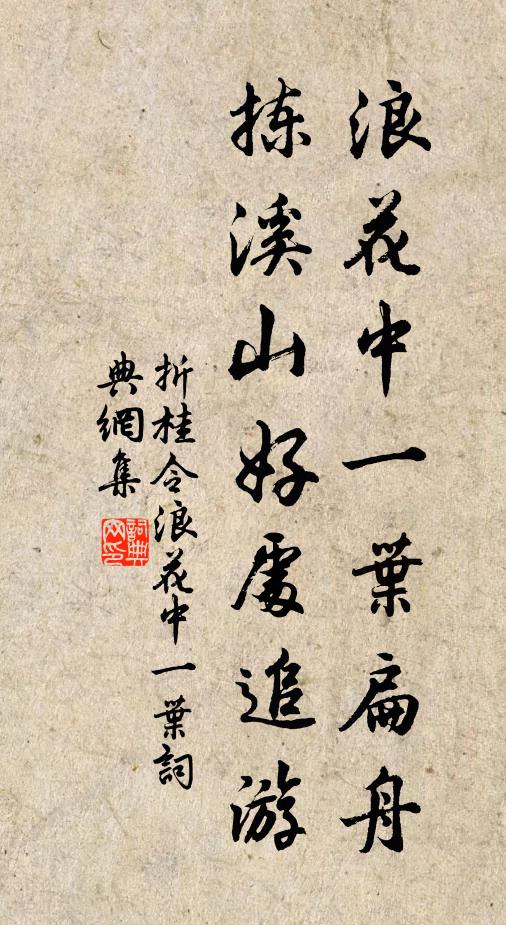 浪花中一葉扁舟
揀溪山好處追游
折桂令浪花中一葉詞
典網集
詞典
网印